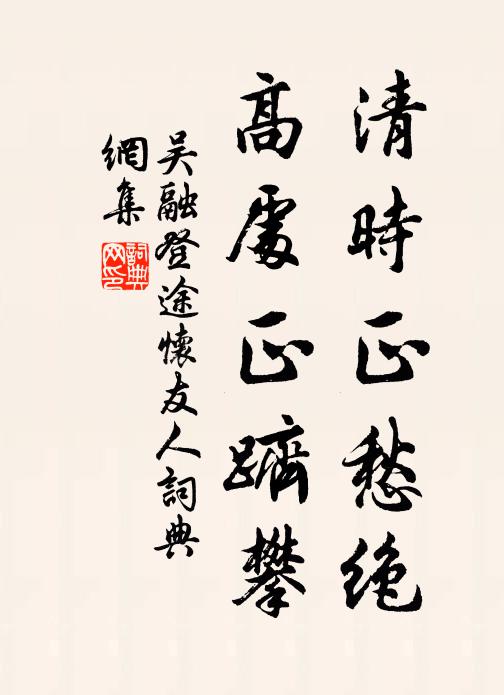 清時正愁絶
高處正躋攀
吴融登途懷友人詞典
網集
詞典网印